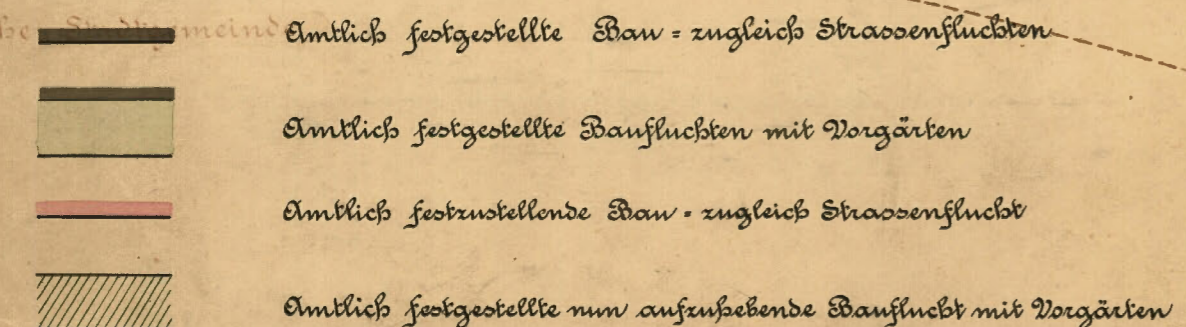 Amtlich festgestellte Bau = zugleich Strassenfluchten
Amtlich festgestellte Baufluchten mit Vorgärten
Amtlich festzustellende Bau = zugleich Strassenflucht
Amtlich festgestellte nun aufzuhebende Bauflucht mit Vorgärten